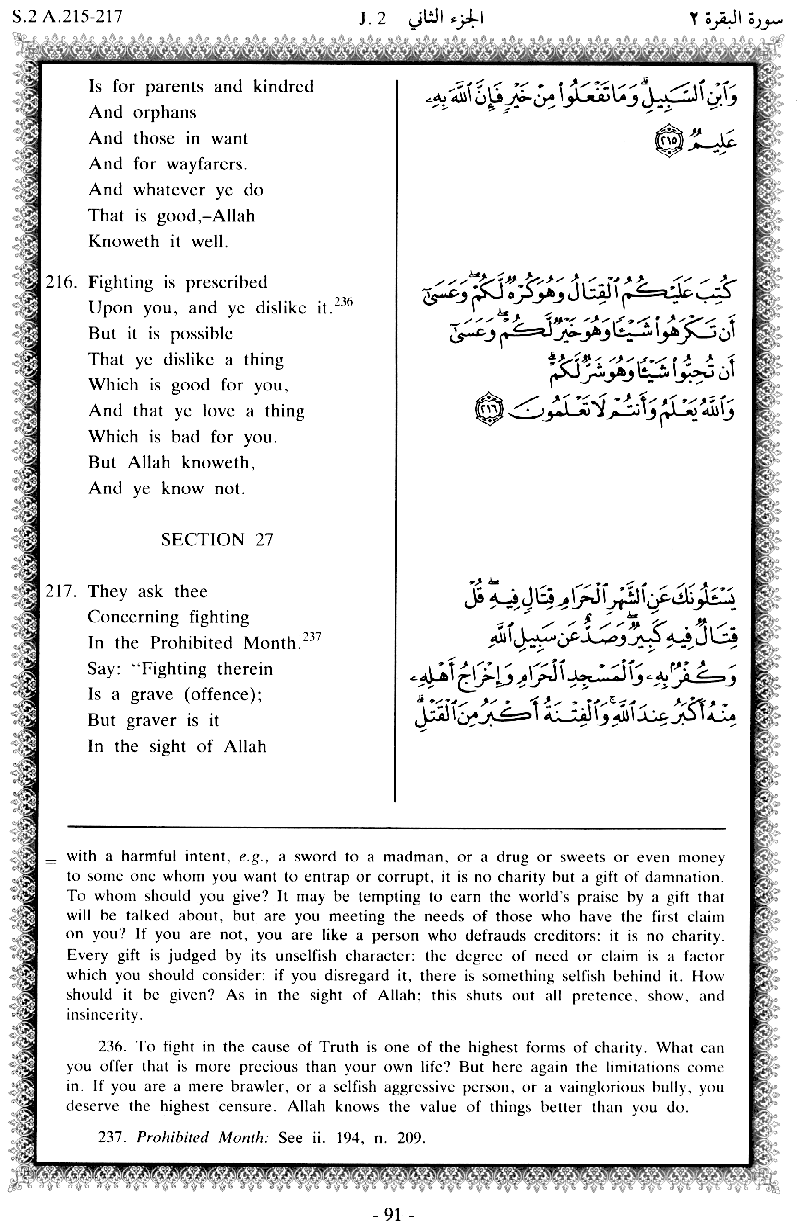 S.2 A.215-217
J. 2 الجزء الثاني
سورة البقرة ٢
Is for parents and kindred
And orphans
And those in want
And for wayfarers.
And whatever ye do
That is good,–Allah
Knoweth it well.
وَٱبْنِ ٱلسَّبِيلِ ۗ وَمَا تَفْعَلُوا۟ مِنْ خَيْرٍ فَإِنَّ ٱللَّهَ بِهِۦ
عَلِيمٌ ٢١٥
216. Fighting is prescribed
Upon you, and ye dislike it.236
But it is possible
That ye dislike a thing
Which is good for you,
And that ye love a thing
Which is bad for you.
But Allah knoweth,
And ye know not.
كُتِبَ عَلَيْكُمُ ٱلْقِتَالُ وَهُوَ كُرْهٌ لَّكُمْ ۖ وَعَسَىٰٓ
أَن تَكْرَهُوا۟ شَيْـًٔا وَهُوَ خَيْرٌ لَّكُمْ ۖ وَعَسَىٰٓ
أَن تُحِبُّوا۟ شَيْـًٔا وَهُوَ شَرٌّ لَّكُمْ ۗ
وَٱللَّهُ يَعْلَمُ وَأَنتُمْ لَا تَعْلَمُونَ ٢١٦
SECTION 27
217. They ask thee
Concerning fighting
In the Prohibited Month.237
Say: “Fighting therein
Is a grave (offence);
But graver is it
In the sight of Allah
يَسْـَٔلُونَكَ عَنِ ٱلشَّهْرِ ٱلْحَرَامِ قِتَالٍ فِيهِ ۖ قُلْ
قِتَالٌ فِيهِ كَبِيرٌ ۖ وَصَدٌّ عَن سَبِيلِ ٱللَّهِ
وَكُفْرٌۢ بِهِۦ وَٱلْمَسْجِدِ ٱلْحَرَامِ وَإِخْرَاجُ أَهْلِهِۦ
مِنْهُ أَكْبَرُ عِندَ ٱللَّهِ ۚ وَٱلْفِتْنَةُ أَكْبَرُ مِنَ ٱلْقَتْلِ ۗ
= with a harmful intent, e.g., a sword to a madman, or a drug or sweets or even money
to some one whom you want to entrap or corrupt, it is no charity but a gift of damnation.
To whom should you give? It may be tempting to earn the world's praise by a gift that
will be talked about, but are you meeting the needs of those who have the first claim
on you? If you are not, you are like a person who defrauds creditors: it is no charity.
Every gift is judged by its unselfish character: the degree of need or claim is a factor
which you should consider: if you disregard it, there is something selfish behind it. How
should it be given? As in the sight of Allah: this shuts out all pretence, show, and
insincerity.
236. To fight in the cause of Truth is one of the highest forms of charity. What can
you offer that is more precious than your own life? But here again the limitations come
in. If you are a mere brawler, or a selfish aggressive person, or a vainglorious bully, you
deserve the highest censure. Allah knows the value of things better than you do.
237. Prohibited Month: See ii. 194, n. 209.
- 91 -